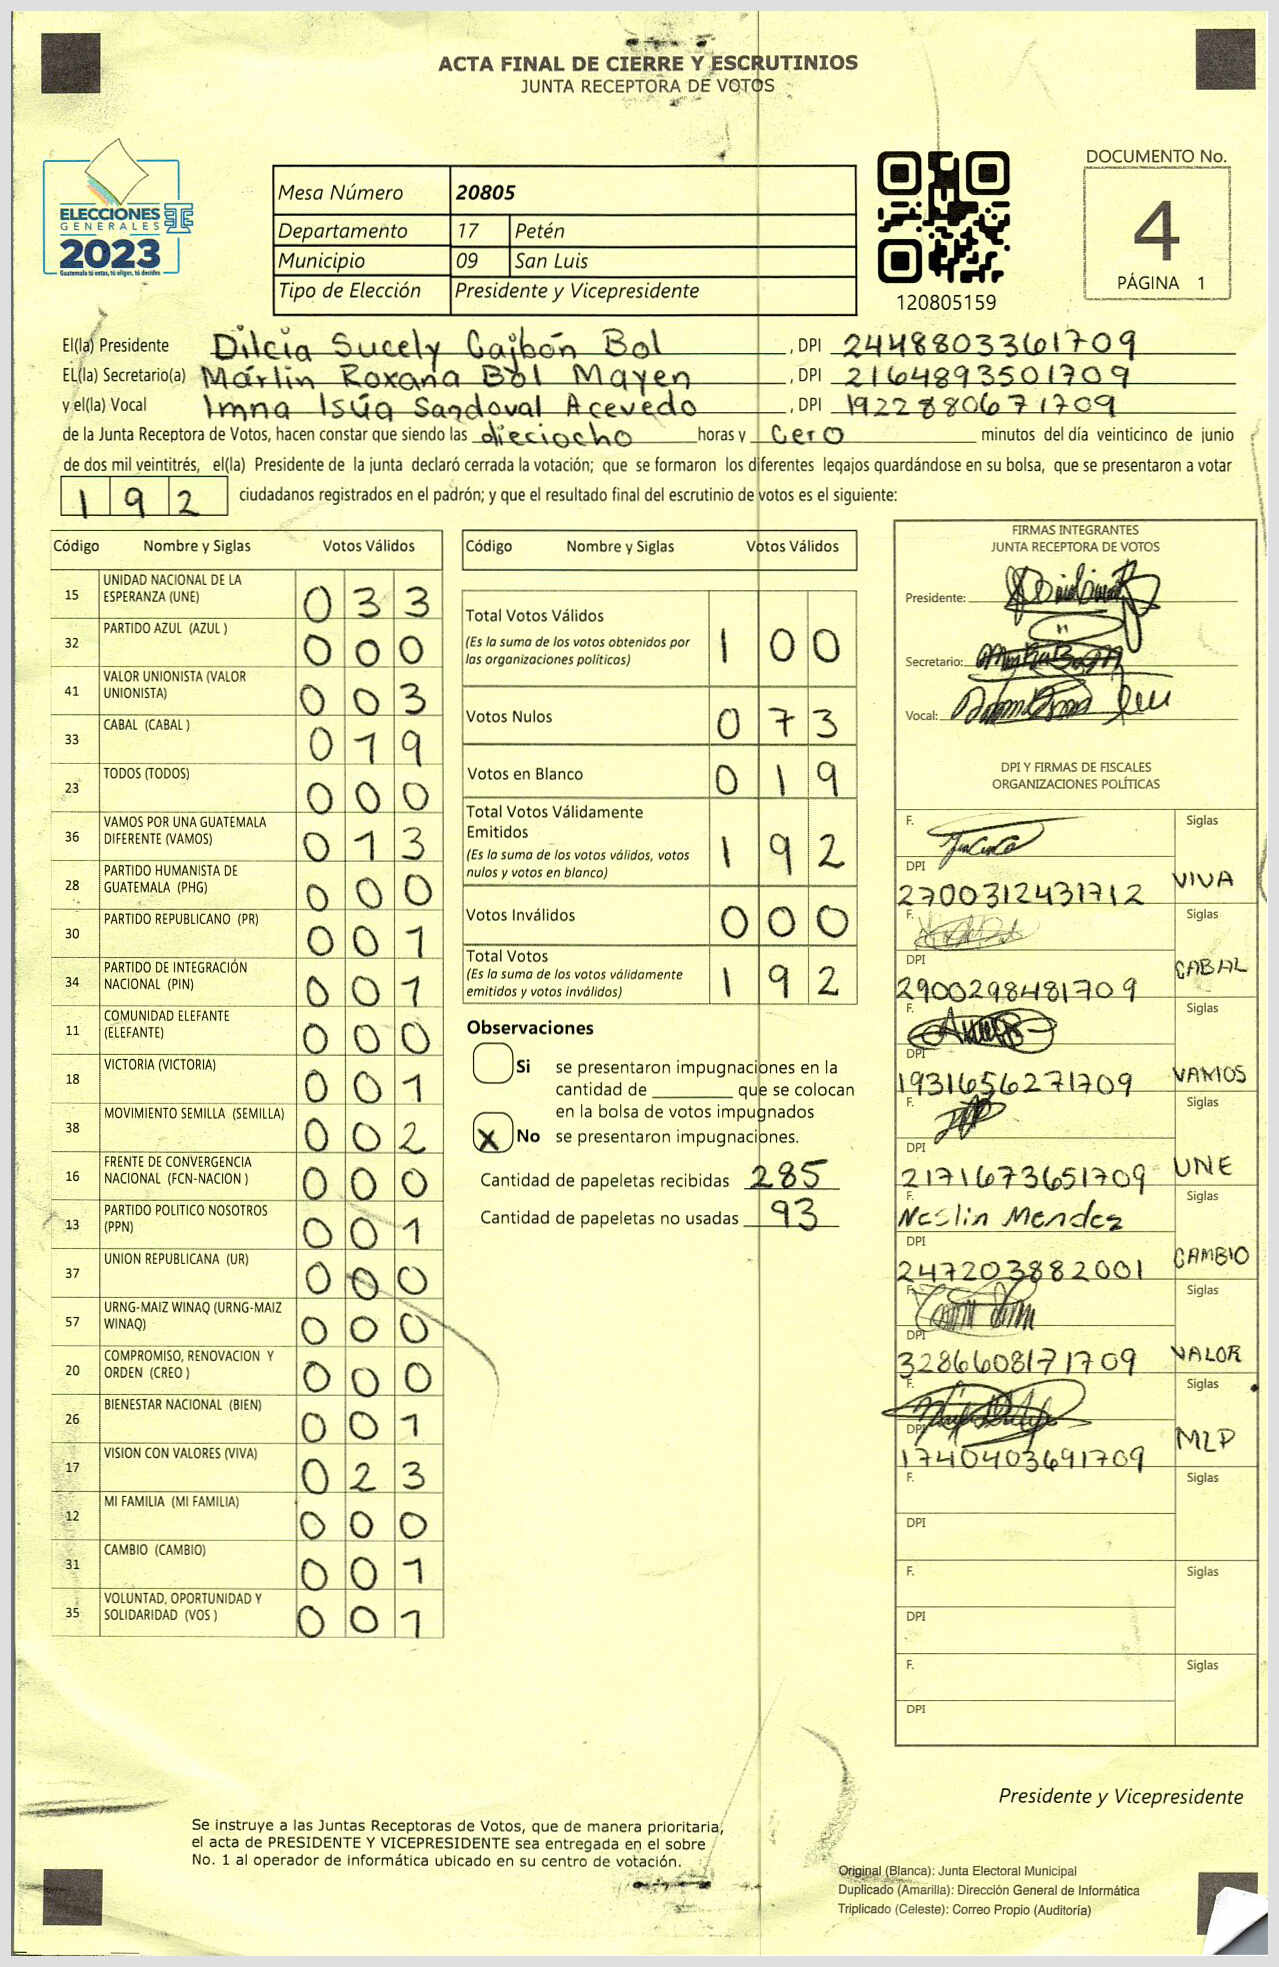 ACTA FINAL DE CIERRE Y ESCRUTINIOS
JUNTA RECEPTORA DE VOTOS
ELECCIONES
GENERALES
2023
Guatemala tú votas, tú eliges, tú decides
Mesa Número 20805
Departamento 17 Petén
Municipio 09 San Luis
Tipo de Elección Presidente y Vicepresidente
120805159
DOCUMENTO No.
4
PÁGINA 1
El(la) Presidente Dilcia Sucely Cajbón Bol , DPI 2448803361709
EL(la) Secretario(a) Márlin Roxana Bol Mayen , DPI 2164893501709
y el(la) Vocal Imna Isúa Sandoval Acevedo , DPI 1922880671709
de la Junta Receptora de Votos, hacen constar que siendo las dieciocho horas y cero minutos del día veinticinco de junio
de dos mil veintitrés, el(la) Presidente de la junta declaró cerrada la votación; que se formaron los diferentes legajos guardándose en su bolsa, que se presentaron a votar
192 ciudadanos registrados en el padrón; y que el resultado final del escrutinio de votos es el siguiente:
Código Nombre y Siglas Votos Válidos
15 UNIDAD NACIONAL DE LA
ESPERANZA (UNE) 033
32 PARTIDO AZUL (AZUL ) 000
41 VALOR UNIONISTA (VALOR
UNIONISTA) 003
33 CABAL (CABAL ) 019
23 TODOS (TODOS) 000
36 VAMOS POR UNA GUATEMALA
DIFERENTE (VAMOS) 013
28 PARTIDO HUMANISTA DE
GUATEMALA (PHG) 000
30 PARTIDO REPUBLICANO (PR) 001
34 PARTIDO DE INTEGRACIÓN
NACIONAL (PIN) 001
11 COMUNIDAD ELEFANTE
(ELEFANTE) 000
18 VICTORIA (VICTORIA) 001
38 MOVIMIENTO SEMILLA (SEMILLA) 002
16 FRENTE DE CONVERGENCIA
NACIONAL (FCN-NACION ) 000
13 PARTIDO POLITICO NOSOTROS
(PPN) 001
37 UNION REPUBLICANA (UR) 000
57 URNG-MAIZ WINAQ (URNG-MAIZ
WINAQ) 000
20 COMPROMISO, RENOVACION Y
ORDEN (CREO ) 000
26 BIENESTAR NACIONAL (BIEN) 001
17 VISION CON VALORES (VIVA) 023
12 MI FAMILIA (MI FAMILIA) 000
31 CAMBIO (CAMBIO) 001
35 VOLUNTAD, OPORTUNIDAD Y
SOLIDARIDAD (VOS ) 001
Código Nombre y Siglas Votos Válidos
Total Votos Válidos 100
(Es la suma de los votos obtenidos por
las organizaciones políticas)
Votos Nulos 073
Votos en Blanco 019
Total Votos Válidamente
Emitidos 192
(Es la suma de los votos válidos, votos
nulos y votos en blanco)
Votos Inválidos 000
Total Votos 192
(Es la suma de los votos válidamente
emitidos y votos inválidos)
Observaciones
Si se presentaron impugnaciones en la
cantidad de ________ que se colocan
en la bolsa de votos impugnados
X No se presentaron impugnaciones.
Cantidad de papeletas recibidas 285
Cantidad de papeletas no usadas 93
FIRMAS INTEGRANTES
JUNTA RECEPTORA DE VOTOS
Presidente:
Secretario:
Vocal:
DPI Y FIRMAS DE FISCALES
ORGANIZACIONES POLÍTICAS
F. Siglas
DPI VIVA
2700312431712
F. Siglas
DPI CABAL
2900298481709
F. Siglas
DPI VAMOS
1931656271709
F.
DPI UNE
2171673651709
F. Siglas
Neslin Mendez
DPI CAMBIO
2472038882001
F. Siglas
DPI VALOR
3286608171709
F. Siglas
DPI MLP
1740403691709
F. Siglas
DPI
F. Siglas
DPI
F. Siglas
DPI
Presidente y Vicepresidente
Se instruye a las Juntas Receptoras de Votos, que de manera prioritaria,
el acta de PRESIDENTE Y VICEPRESIDENTE sea entregada en el sobre
No. 1 al operador de informática ubicado en su centro de votación.
Original (Blanca): Junta Electoral Municipal
Duplicado (Amarilla): Dirección General de Informática
Triplicado (Celeste): Correo Propio (Auditoría)